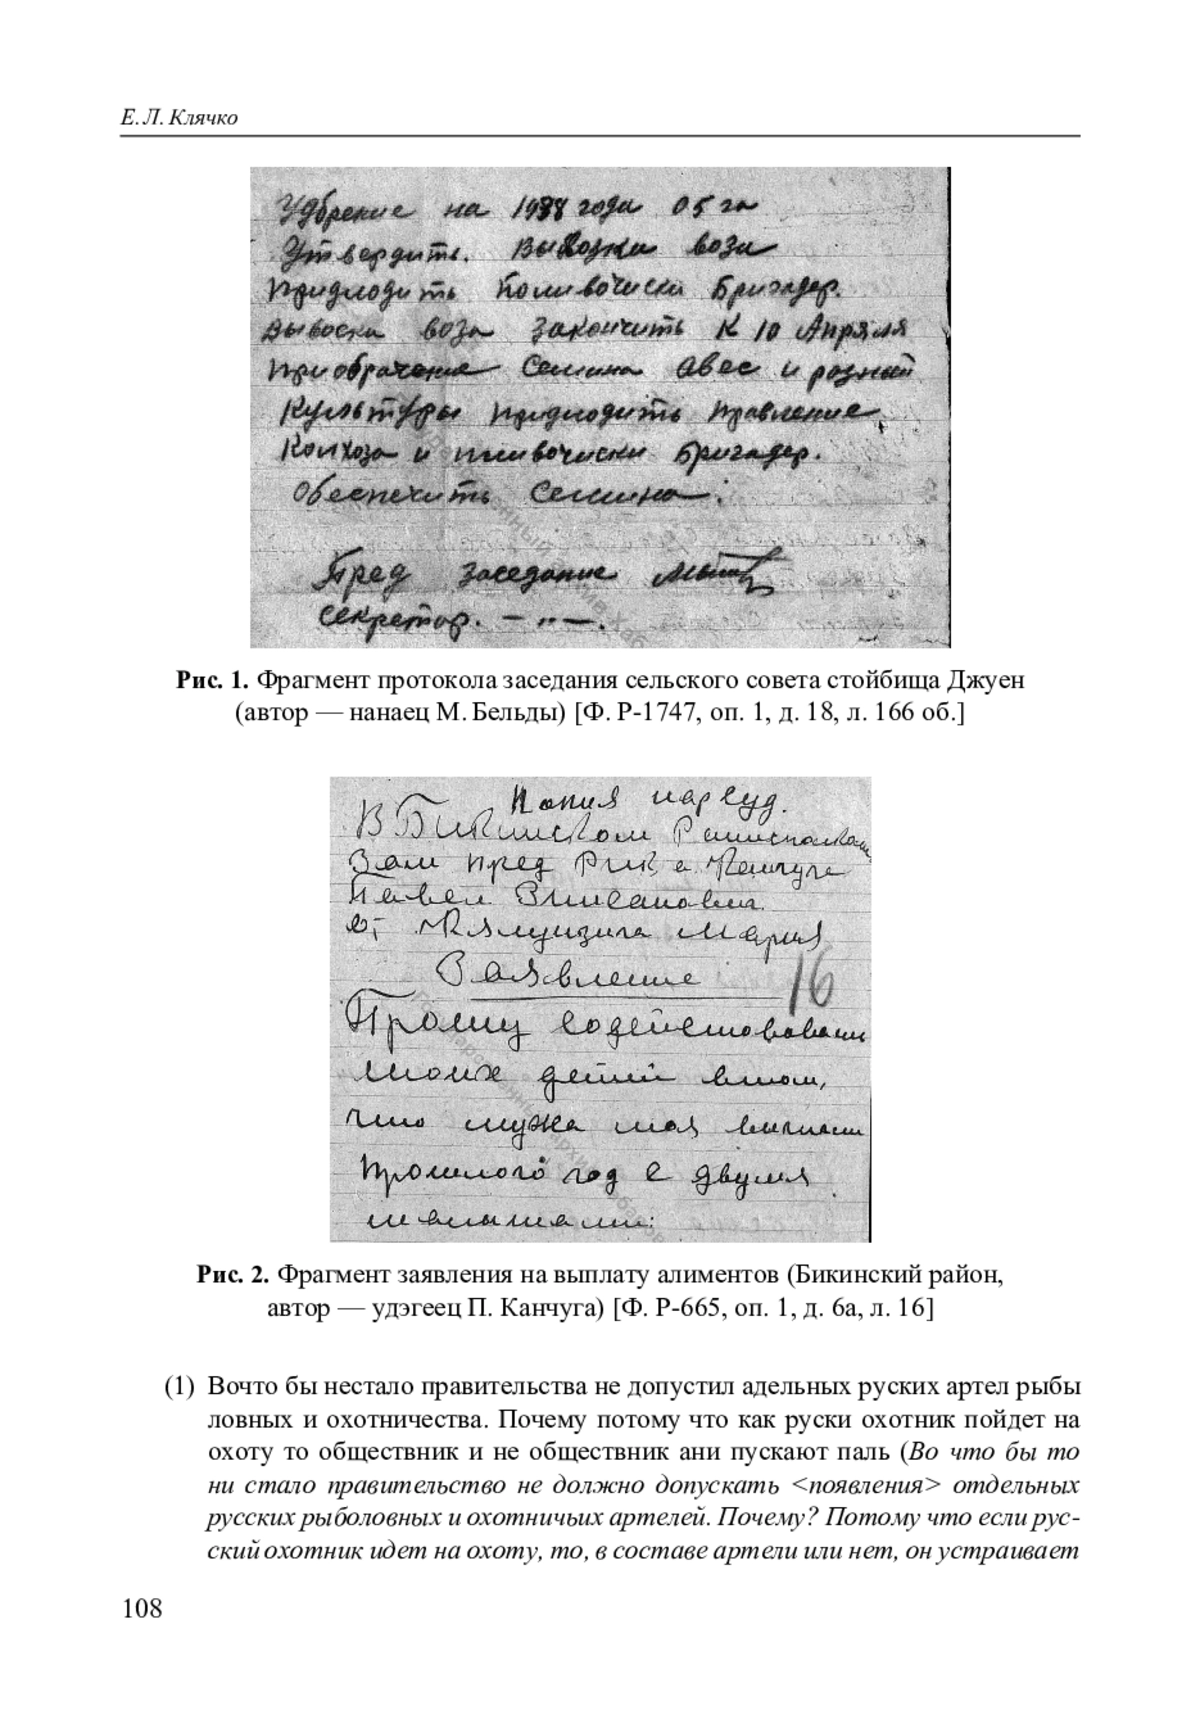 Е. Л. Клячко
Удбрение на 1938 года 05 га
Утвердить. Вывозка воза
придлодить поливочиски бригадер.
Вывоска воза закончить к 10 Апряля
приобрачение Семина авес и розный
культуры придлодить правление
колхоза и поливочиски бригадер.
обеспечить Семина.
Пред заседание
секретор. — „ —.
Копия нарсуд.
В Бикинском
Зам пред РИК а Канчуга
Павел
от Кялундзига Мария
Заявление
16
Прошу содействовавши
моих детей втом,
что мужа моя
прошлого год с двумя
малышами:
Рис. 1. Фрагмент протокола заседания сельского совета стойбища Джуен
(автор — нанаец М. Бельды) [Ф. Р-1747, оп. 1, д. 18, л. 166 об.]
Рис. 2. Фрагмент заявления на выплату алиментов (Бикинский район,
автор — удэгеец П. Канчуга) [Ф. Р-665, оп. 1, д. 6а, л. 16]
(1) Вочто бы нестало правительства не допустил адельных руских артел рыбы
ловных и охотничества. Почему потому что как руски охотник пойдет на
охоту то обществник и не обществник ани пускают паль (Во что бы то
ни стало правительство не должно допускать <появления> отдельных
русских рыболовных и охотничьих артелей. Почему? Потому что если рус-
ский охотник идет на охоту, то, в составе артели или нет, он устраивает
108